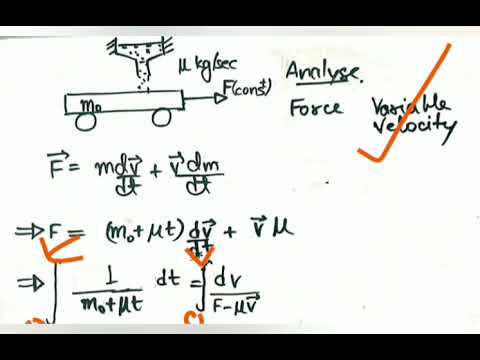 μ kg/sec
F(const)
m₀
Analyse.
Force Variable
Velocity
F⃗ = m dv⃗/dt + v⃗ dm/dt
⇒ F = (m₀+μt) dv⃗/dt + v⃗ μ
⇒ ∫ 1/(m₀+μt) dt = ∫ dv/(F-μv⃗)